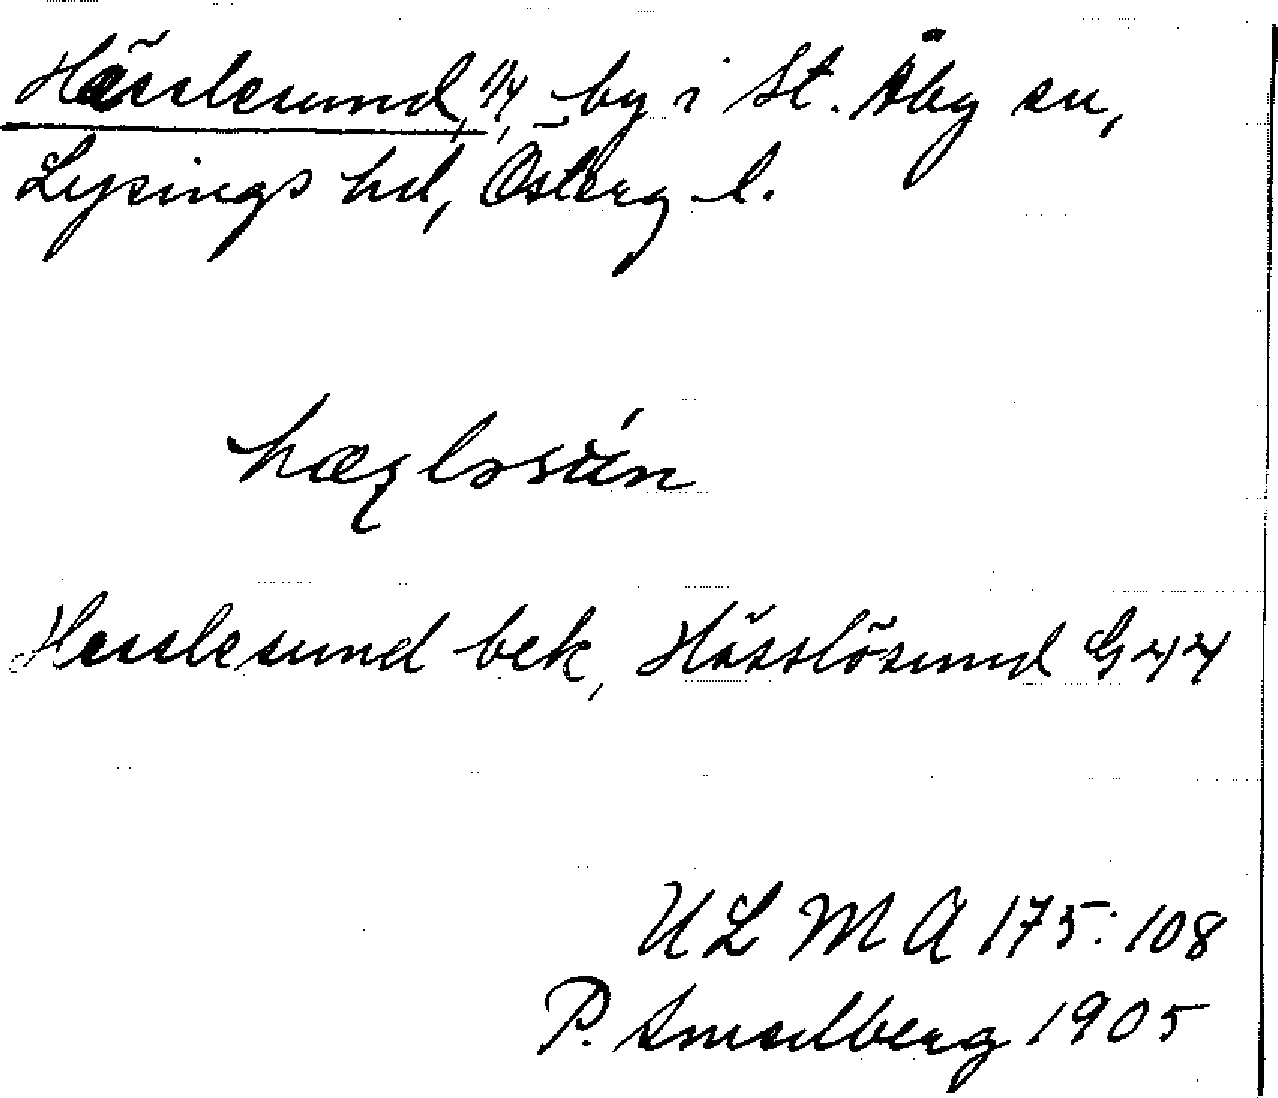 Hässlesund, 1/4, by i St. Åby sn,
Lysings hd, Österg l.
Hesslesund bek, Hässlösund G 44
ULMA 175:108
P. Smedberg 1905